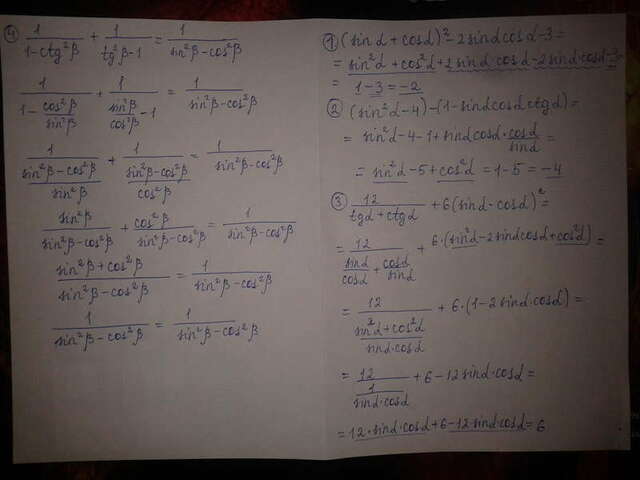 ④ 1/(1-ctg²β) + 1/(tg²β-1) = 1/(sin²β-cos²β)
1/(1-cos²β/sin²β) + 1/(sin²β/cos²β-1) = 1/(sin²β-cos²β)
1/((sin²β-cos²β)/sin²β) + 1/((sin²β-cos²β)/cos²β) = 1/(sin²β-cos²β)
sin²β/(sin²β-cos²β) + cos²β/(sin²β-cos²β) = 1/(sin²β-cos²β)
(sin²β+cos²β)/(sin²β-cos²β) = 1/(sin²β-cos²β)
1/(sin²β-cos²β) = 1/(sin²β-cos²β)
① (sinα+cosα)²-2sinαcosα-3=
= sin²α+cos²α+2sinα·cosα-2sinα·cosα-3=
= 1-3=-2
② (sin²α-4)-(1-sinαcosαctgα)=
= sin²α-4-1+sinαcosα·cosα/sinα=
= sin²α-5+cos²α=1-5=-4
③ 12/(tgα+ctgα) + 6(sinα-cosα)²=
= 12/(sinα/cosα+cosα/sinα) + 6·(sin²α-2sinαcosα+cos²α)=
= 12/((sin²α+cos²α)/(sinα·cosα)) + 6·(1-2sinα·cosα)=
= 12/(1/(sinα·cosα)) + 6-12sinα·cosα=
= 12·sinα·cosα+6-12·sinα·cosα=6